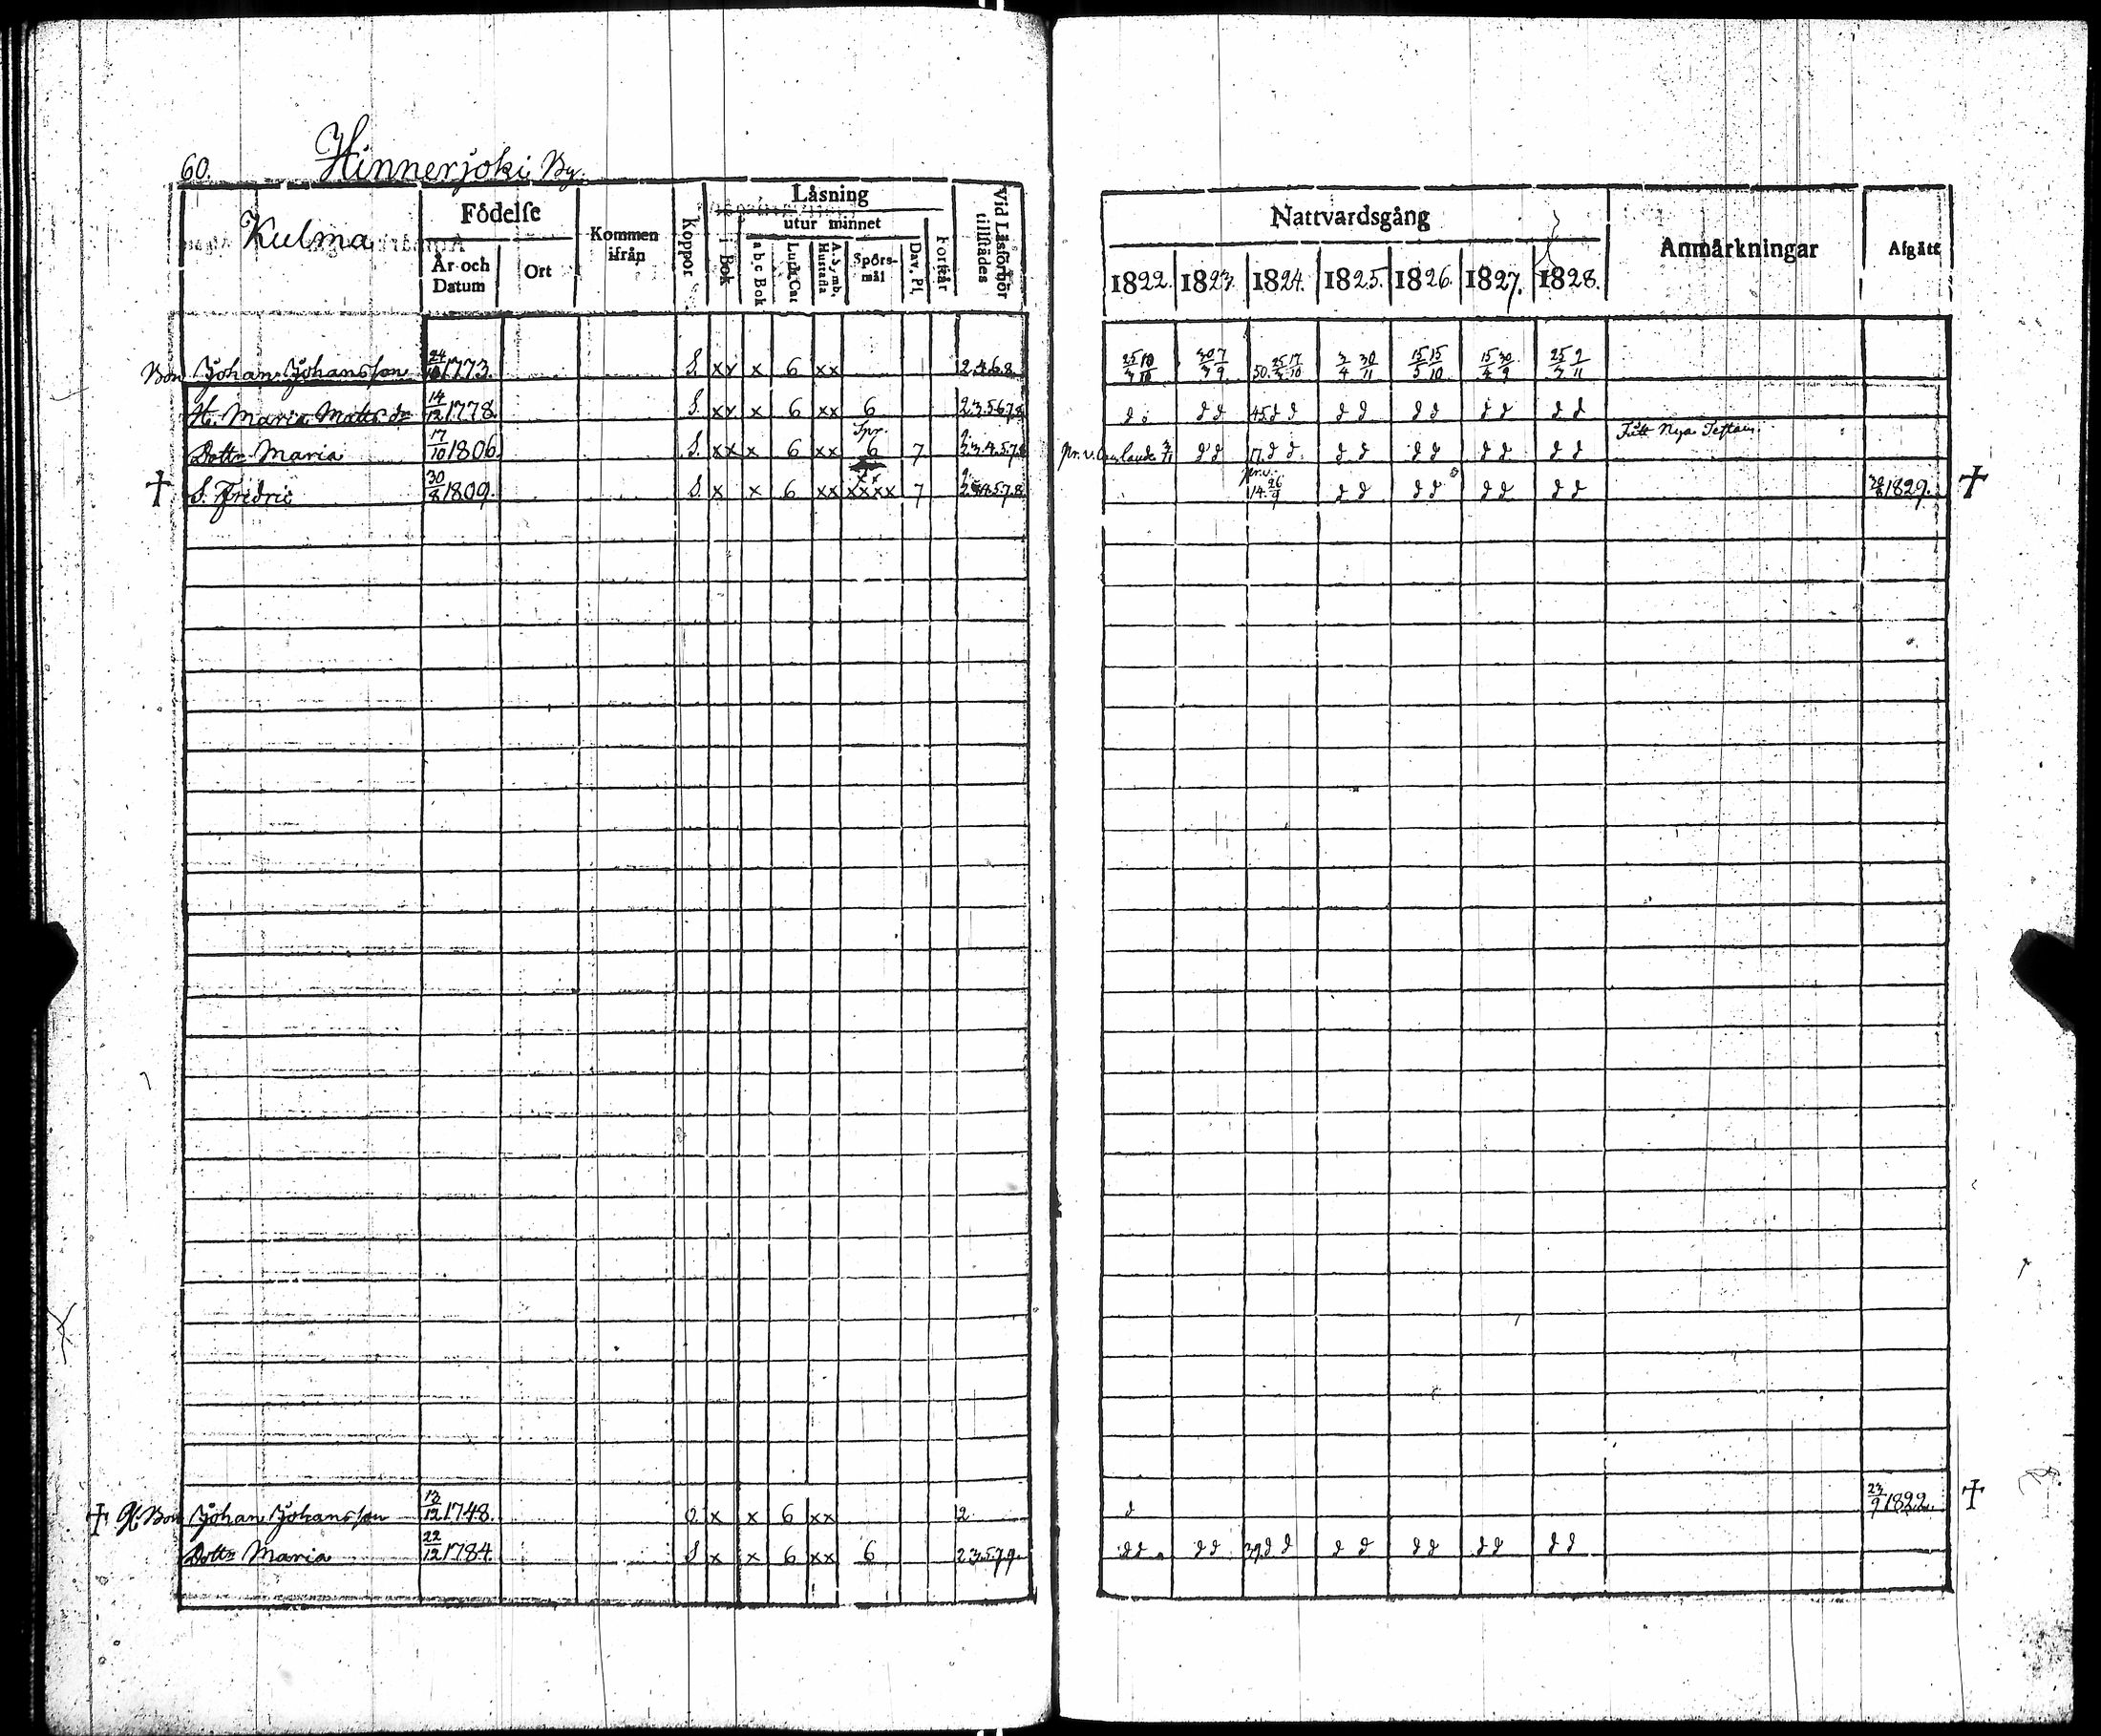 60. Hinnerjoki By.
Kulma
Födelse
År och Datum
Ort
Kommen ifrån
Koppor
Läsning
i Bok
utur minnet
a b c Bok
Luth. Cat
A. Symb. Hustafla
Spörsmål
Dav. Ps.
Förstår
Vid Läsförhör tillstädes
Nattvardsgång
1822. 1823. 1824. 1825. 1826. 1827. 1828.
Anmärkningar
Afgått
Bon Johan Johansson 24/10 1773. S. xx x 6 xx 2.4.6.8 25/3 10/10 30/3 7/9 50. 25/3 17/10 3/4 30/11 15/5 15/10 15/4 30/9 25/3 9/11
H. Maria Matts dr 14/12 1778. S. xx x 6 xx 6 2.3.5.6.7.8 d d d d 45. d d d d d d d d d d
Dottr Maria 17/10 1806 S. xx x 6 xx Spr. 6 7 2.3.4.5.7.8 pr. v. 3/11 d d 17. d d d d d d d d d d Fått Nya Testam.
† S. Fredric 30/8 1809. S. x x 6 xx xxxx 7 2.3.4.5.7.8. pr. v. 14. 26/9 d d d d d d d d 1829. †
† G. Bon Johan Johansson 13/12 1748. o. x x 6 xx 2 d 23/9 1822. †
Dottr Maria 22/12 1784. S x x 6 xx 6 2.3.5.7.9. d d d d 39. d d d d d d d d d d